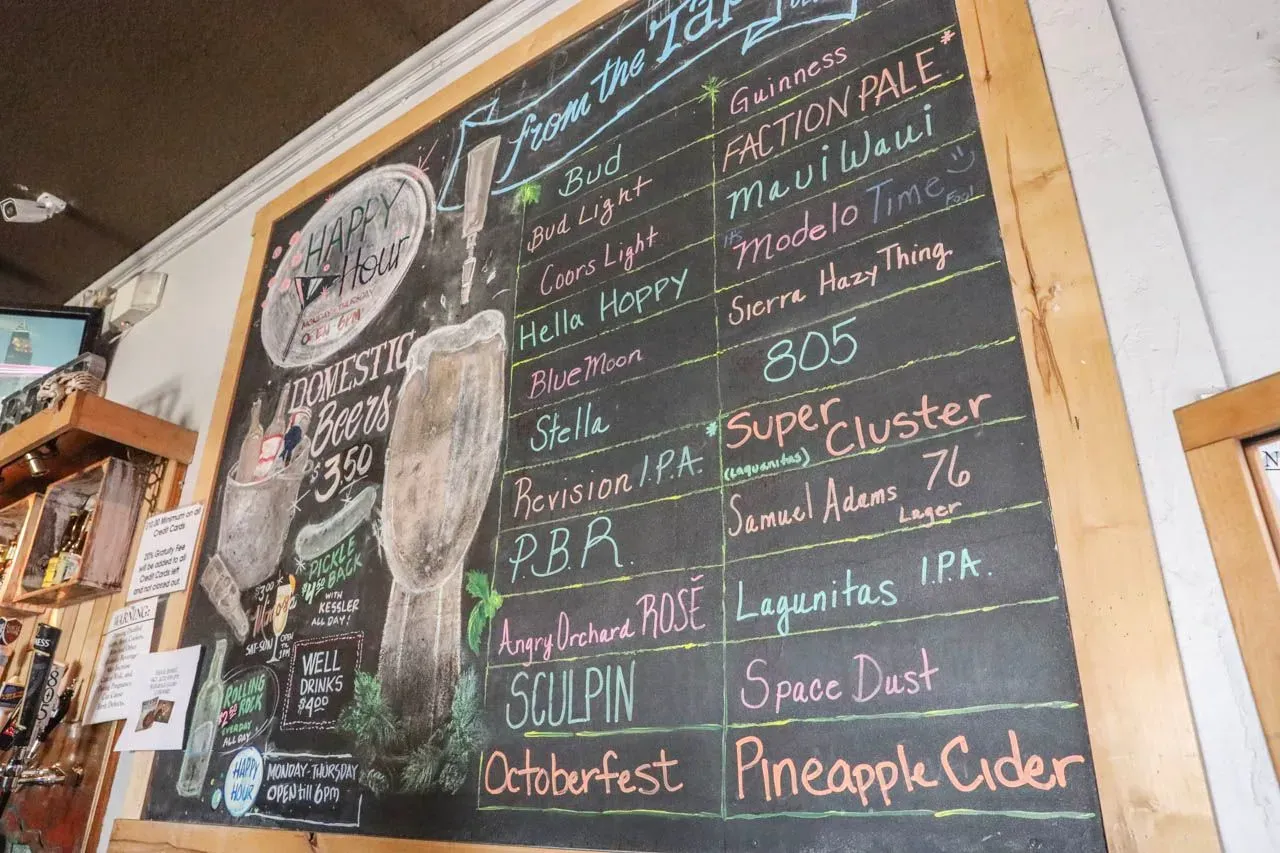 from the Tap
HAPPY
Hour
MONDAY-THURSDAY
OPEN 6PM
DOMESTIC
Beers
$3.50
PICKLE
$4.50 BACK
WITH
KESSLER
ALL DAY!
$3.00
SAT-SUN
OPEN
TIL
1PM
WELL
DRINKS
$4.00
ROLLING
ROCK
2.50
EVERYDAY
ALL DAY
HAPPY
HOUR
MONDAY-THURSDAY
OPEN till 6pm
Bud
Bud Light
Coors Light
Hella Hoppy
Blue Moon
Stella
Revision I.P.A.
P.B.R.
Angry Orchard ROSÉ
SCULPIN
Octoberfest
Guinness
FACTION PALE*
Maui Waui
It's Modelo Time Fool
Sierra Hazy Thing
805
*Super Cluster
(Lagunitas)
Samuel Adams 76
Lager
Lagunitas I.P.A.
Space Dust
Pineapple Cider
$10.00 Minimum on all
Credit Cards
20% Gratuity Fee
will be added to all
Credit Cards left
and not closed out.
WARNING:
805
N